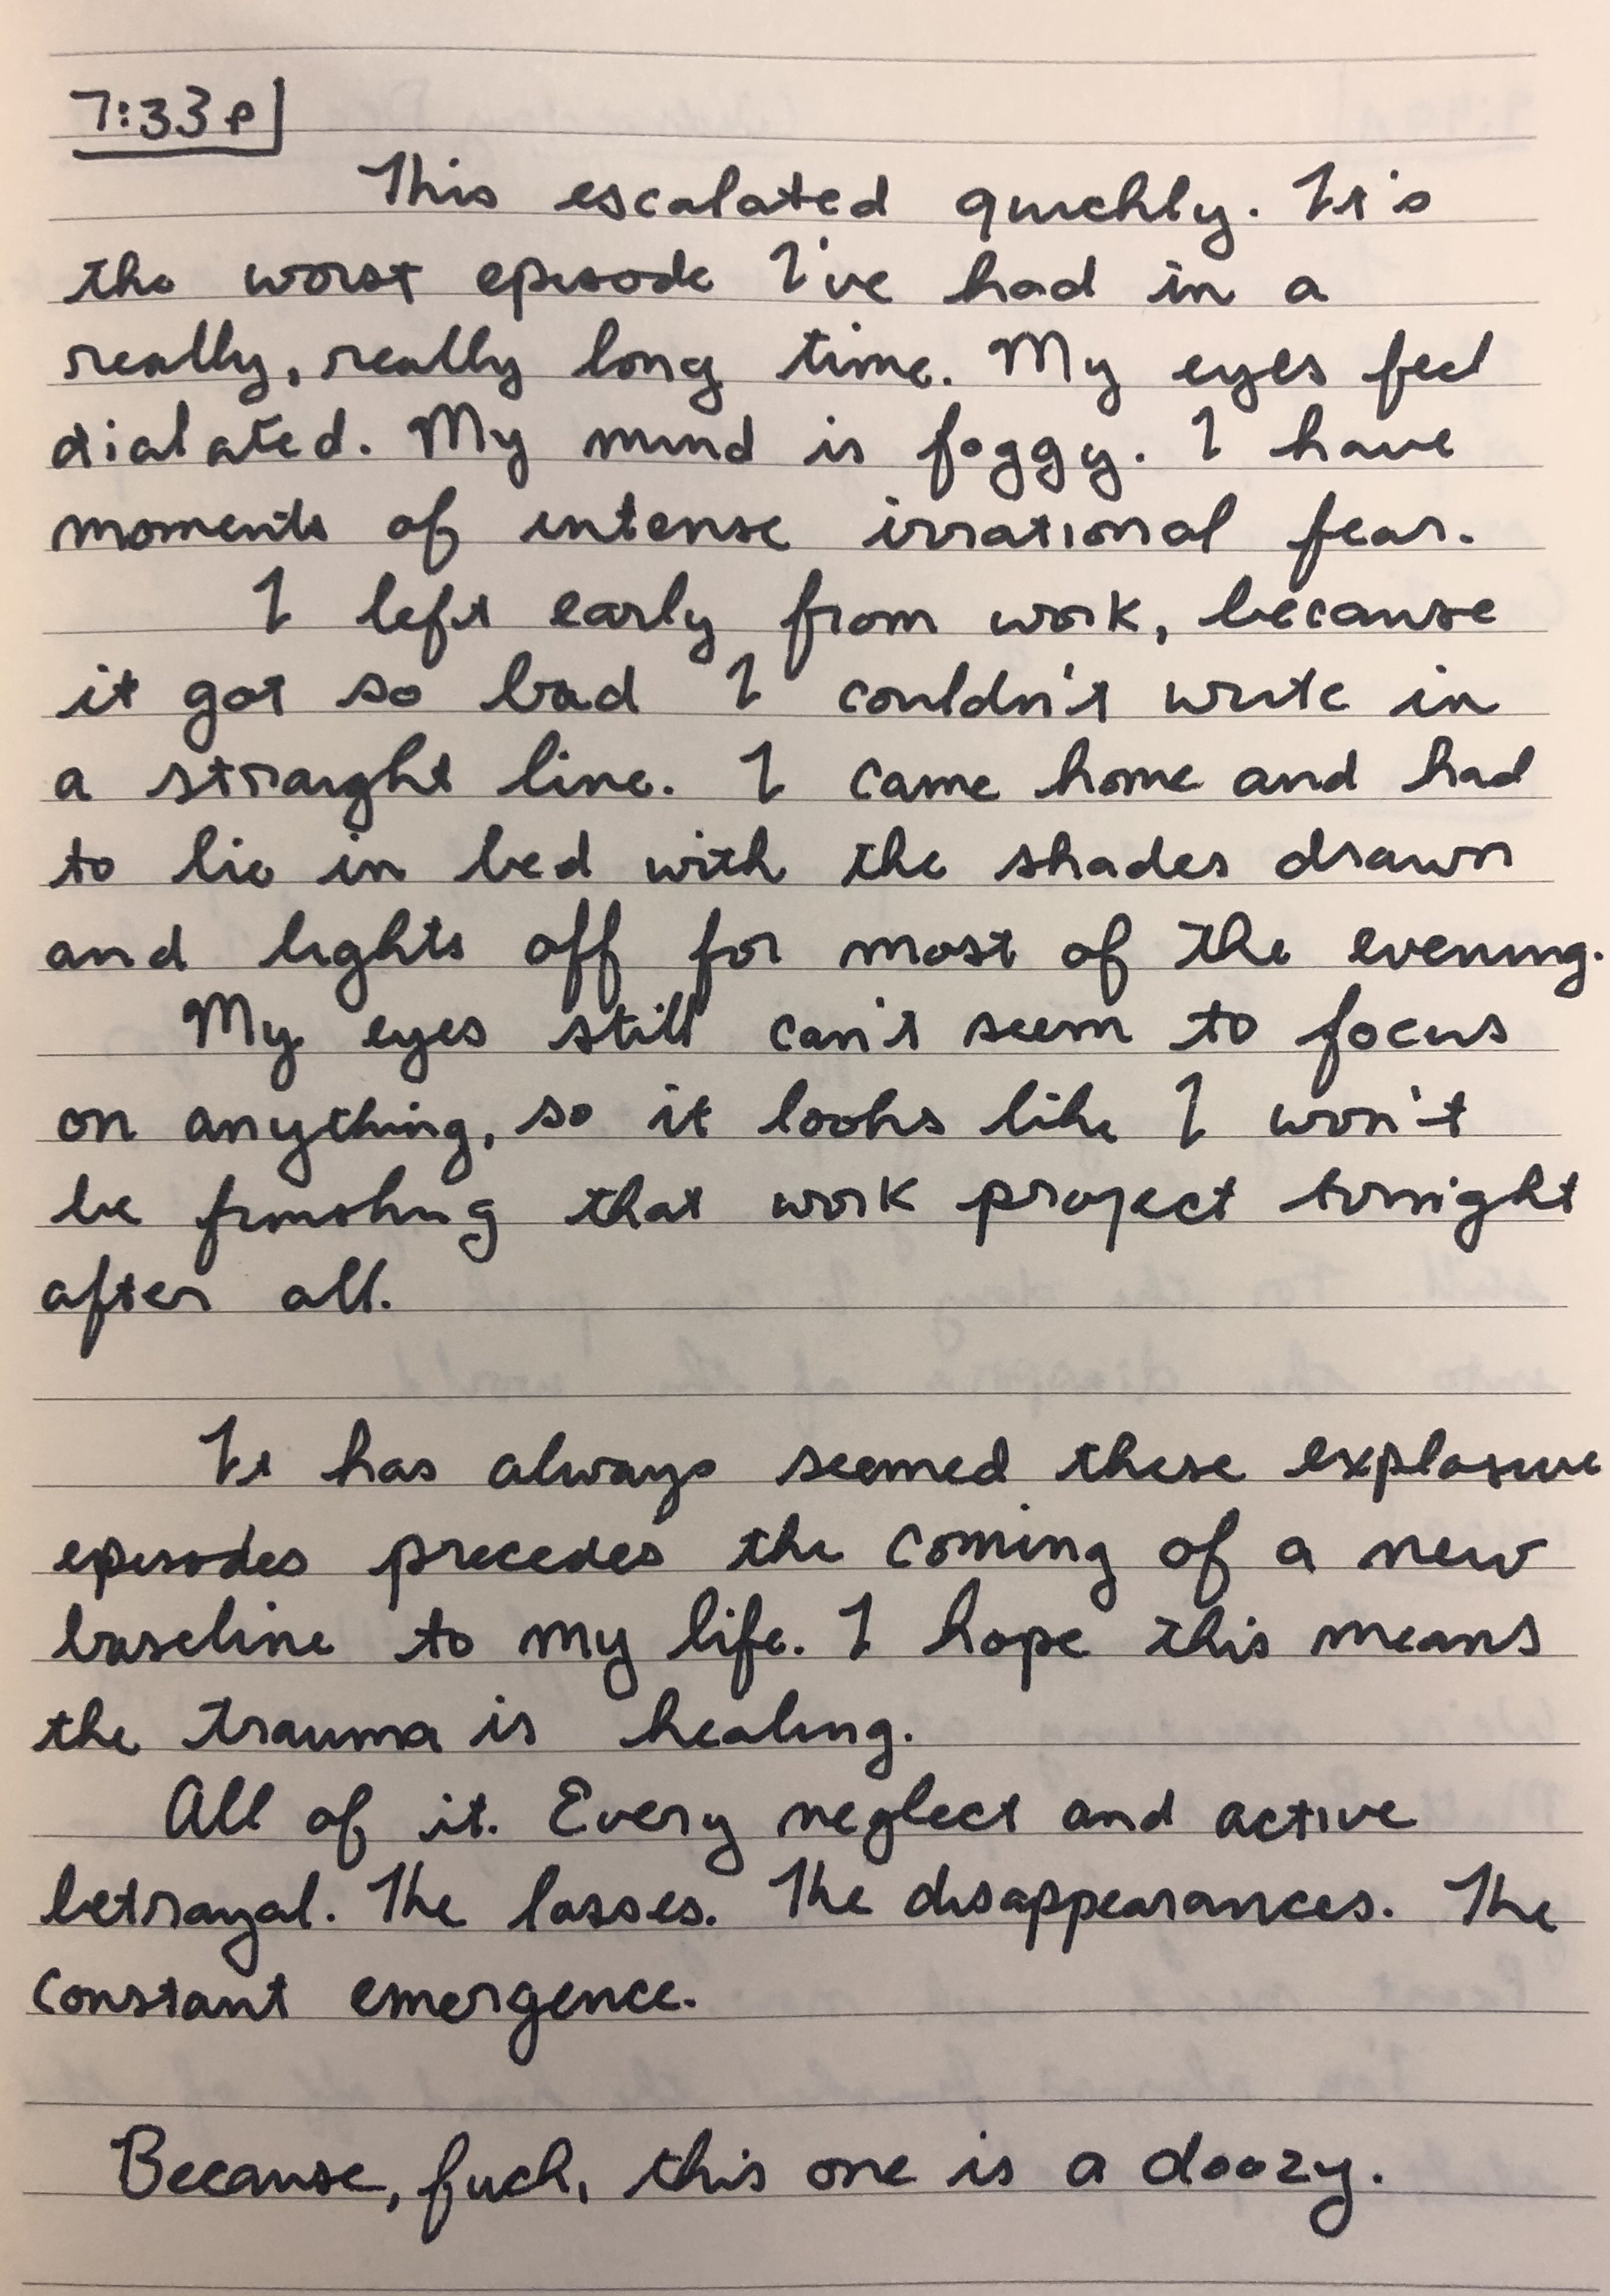 7:33p
This escalated quickly. It's
the worst episode I've had in a
really, really long time. My eyes feel
dialated. My mind is foggy. I have
moments of intense irrational fear.
I left early from work, because
it got so bad I couldn't write in
a straight line. I came home and had
to lie in bed with the shades drawn
and lights off for most of the evening.
My eyes still can't seem to focus
on anything, so it looks like I won't
be finishing that work project tonight
after all.
It has always seemed these explosive
episodes precedes the coming of a new
baseline to my life. I hope this means
the trauma is healing.
All of it. Every neglect and active
betrayal. The losses. The disappearances. The
constant emergence.
Because, fuck, this one is a doozy.